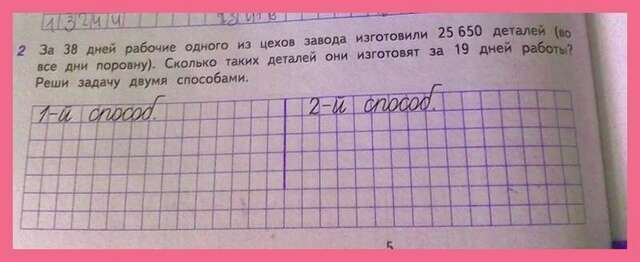 2 За 38 дней рабочие одного из цехов завода изготовили 25 650 деталей (во
все дни поровну). Сколько таких деталей они изготовят за 19 дней работы?
Реши задачу двумя способами.
1-й способ. 2-й способ.
5